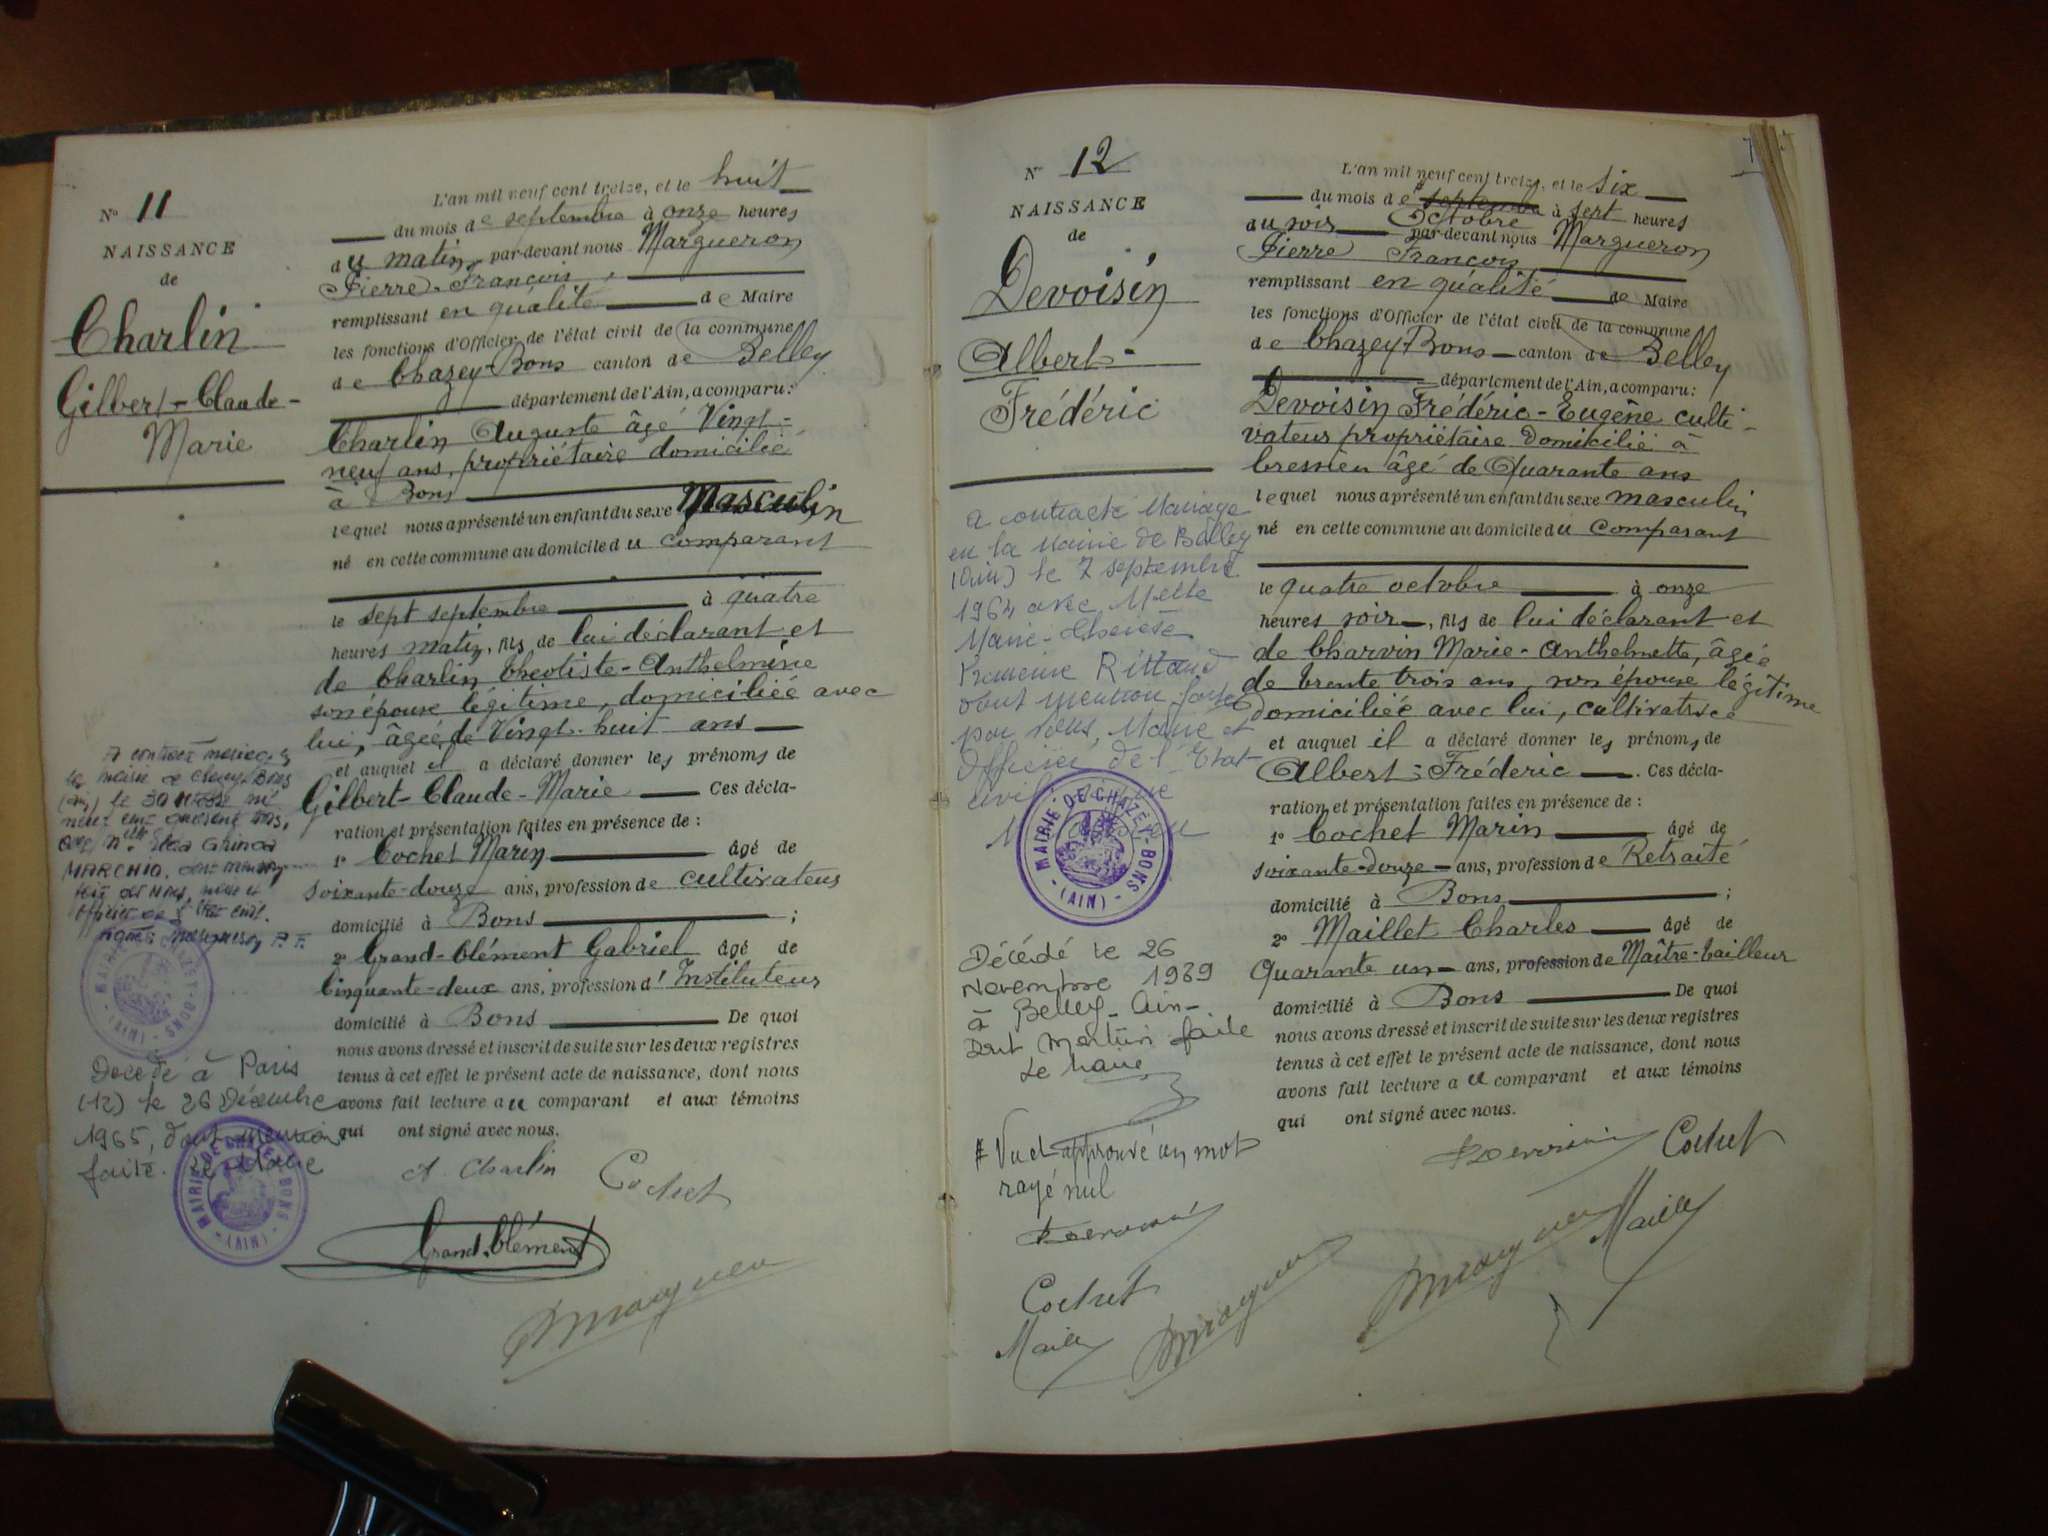 N° 11
NAISSANCE
de
Charlin
Gilbert-Claude-
Marie
L'an mil neuf cent treize, et le huit
du mois de septembre à onze heures
du matin, par-devant nous Margueron
Pierre-François,
remplissant en qualité de Maire
les fonctions d'Officier de l'état civil de la commune
de Chazey-Bons canton de Belley
département de l'Ain, a comparu:
Charlin Auguste âgé Vingt-
neuf ans, propriétaire domicilié
à Bons
lequel nous a présenté un enfant du sexe Masculin
né en cette commune au domicile du comparant
le sept septembre à quatre
heures matin, fils de lui déclarant et
de Charlin Theotiste-Anthelmine
son épouse légitime, domiciliée avec
lui, âgée de Vingt-huit ans
et auquel il a déclaré donner les prénoms de
Gilbert-Claude-Marie Ces décla-
ration et présentation faites en présence de :
1° Cochet Marin âgé de
soixante-douze ans, profession de cultivateur
domicilié à Bons ;
2° Grand-Clément Gabriel âgé de
Cinquante-deux ans, profession d'Instituteur
domicilié à Bons De quoi
nous avons dressé et inscrit de suite sur les deux registres
tenus à cet effet le présent acte de naissance, dont nous
avons fait lecture au comparant et aux témoins
qui ont signé avec nous.
A. Charlin Cochet
Grand-Clément
A contracté mariage à
la mairie de Chazey-Bons
(Ain) le 30
MARCHIO,
officier de l'état civil.
MAIRIE DE CHAZEY-BONS (AIN)
Décédé à Paris
(12) le 26 Décembre
1965, dont mention
faite. Le Maire
MAIRIE DE CHAZEY-BONS (AIN)
N° 12
NAISSANCE
de
Devoisin
Albert-
Frédéric
L'an mil neuf cent treize, et le six
du mois de septembre à sept heures
du soir Octobre par-devant nous Margueron
Pierre François
remplissant en qualité de Maire
les fonctions d'Officier de l'état civil de la commune
de Chazey-Bons canton de Belley
département de l'Ain, a comparu:
Devoisin Frédéric-Eugène culti-
vateur propriétaire domicilié à
Cressieu âgé de Quarante ans
lequel nous a présenté un enfant du sexe masculin
né en cette commune au domicile du comparant
le quatre octobre à onze
heures soir, fils de lui déclarant et
de Charvin Marie-Anthelmette, âgée
de trente trois ans, son épouse légitime
domiciliée avec lui, cultivatrice
et auquel il a déclaré donner les prénoms de
Albert-Fréderic. Ces décla-
ration et présentation faites en présence de :
1° Cochet Marin âgé de
soixante-douze ans, profession de Retraité
domicilié à Bons ;
2° Maillet Charles âgé de
Quarante un ans, profession de Maître-tailleur
domicilié à Bons De quoi
nous avons dressé et inscrit de suite sur les deux registres
tenus à cet effet le présent acte de naissance, dont nous
avons fait lecture au comparant et aux témoins
qui ont signé avec nous.
Devoisin Cochet
A contracté Mariage
en la Mairie de Belley
(Ain) le 7 septembre
1964 avec Melle
Marie-Thérèse
Rittaud
dont mention faite
par nous, Maire et
Officier de l'Etat
civil
MAIRIE DE CHAZEY-BONS (AIN)
Décédé le 26
Novembre 1989
à Belley-Ain-
Dont Mention faite
Le Maire
# Vu et approuvé un mot
rayé nul
Devoisin
Cochet